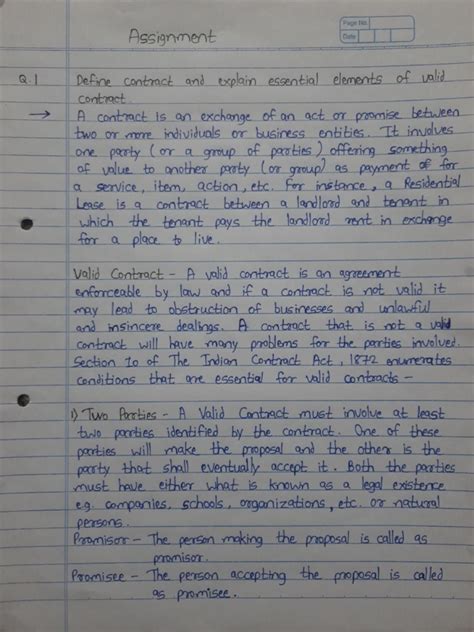 Page No.
Date
Assignment
Q.1 Define contract and explain essential elements of valid
contract.
→ A contract is an exchange of an act or promise between
two or more individuals or business entities. It involves
one party (or a group of parties) offering something
of value to another party (or group) as payment of for
a service, item, action, etc. For instance, a Residential
Lease is a contract between a landlord and tenant in
which the tenant pays the landlord rent in exchange
for a place to live.
Valid Contract - A valid contract is an agreement
enforceable by law and if a contract is not valid it
may lead to obstruction of businesses and unlawful
and insincere dealings. A contract that is not a valid
contract will have many problems for the parties involved.
Section 10 of The Indian Contract Act, 1872 enumerates
conditions that are essential for valid contracts -
1) Two Parties - A Valid Contract must involve at least
two parties identified by the contract. One of these
parties will make the proposal and the other is the
party that shall eventually accept it. Both the parties
must have either what is known as a legal existence
e.g. companies, schools, organizations, etc. or natural
persons.
Promisor - The person making the proposal is called as
promisor.
Promisee - The person accepting the proposal is called
as promisee.